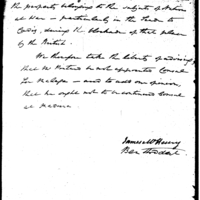 the property belonging to the subjects of Nations
at War — particularly in the Trade to
Cadiz, during the blockade of that place
by the British.
We therefore take the liberty of advising,
that Mr be not appointed Consul
for Malaga — and to add our opinion,
that he ought not to be continued Consul
at
James McHenry
Ben Stoddert